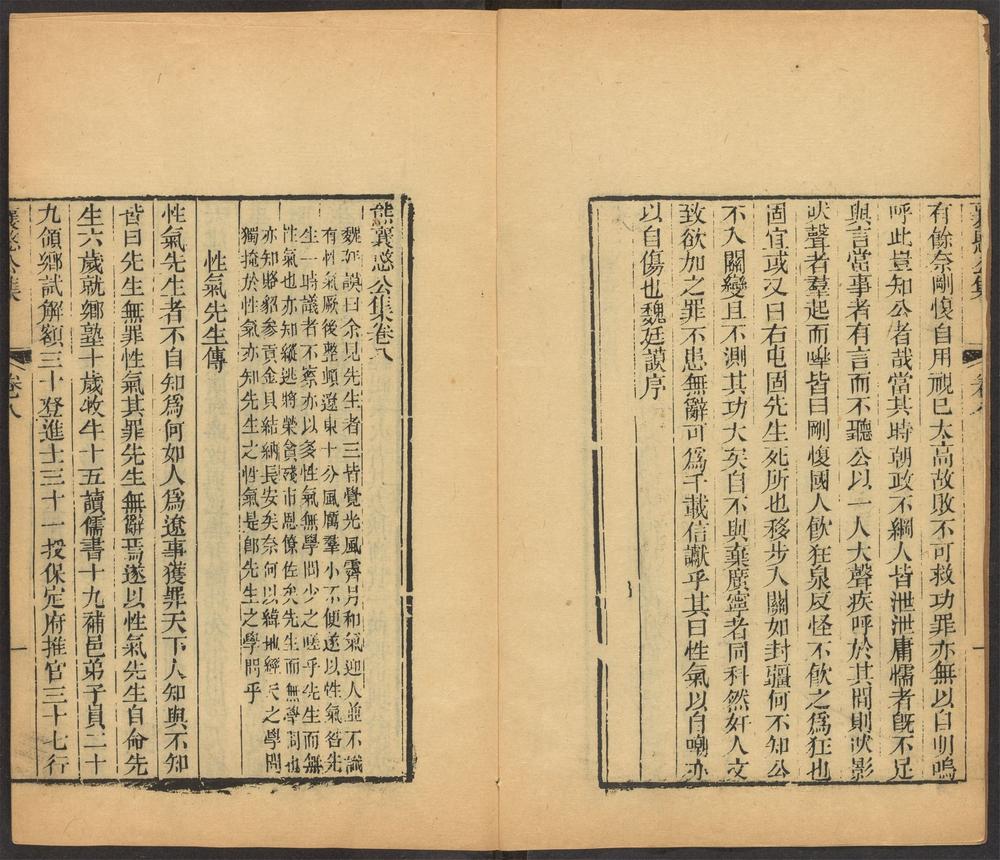 有餘奈剛愎自用視已太高故敗不可救功罪亦無以自明嗚
呼此豈知公者哉當其時朝政不綱人皆泄泄庸懦者旣不足
與言當事者有言而不聽公以一人大聲疾呼於其間則吠影
吠聲者羣起而嘩皆曰剛愎國人飲狂泉反怪不飲之爲狂也
固宜或又曰右屯固先生死所也移步入關如封疆何不知公
不入關變且不測其功大矣自不與棄廣寧者同科然奸人文
致欲加之罪不患無辭可爲千載信讞乎其曰性氣以自嘲亦
以自傷也魏廷謨序
熊襄愍公集卷八
魏廷謨曰余見先生者三皆覺光風霽月和氣迎人並不識
有性氣厥後整頓遼東十分風厲羣小不便遂以性氣咎先
生一時議者不察亦以多性氣無學問少之嗟乎先生而無
性氣也亦知縱逃將榮貪殘市恩僚佐矣先生而無學問也
亦知賂貂參貢金貝結納長安矣奈何以緯地經天之學問
獨掩於性氣亦知先生之性氣是卽先生之學問乎
性氣先生傳
性氣先生者不自知爲何如人爲遼事獲罪天下人知與不知
皆曰先生無罪性氣其罪先生無辭焉遂以性氣先生自命先
生六歲就鄉塾十歲牧牛十五讀儒書十九補邑弟子員二十
九領鄉試解額三十登進士三十一授保定府推官三十七行
襄愍公集
卷八
一